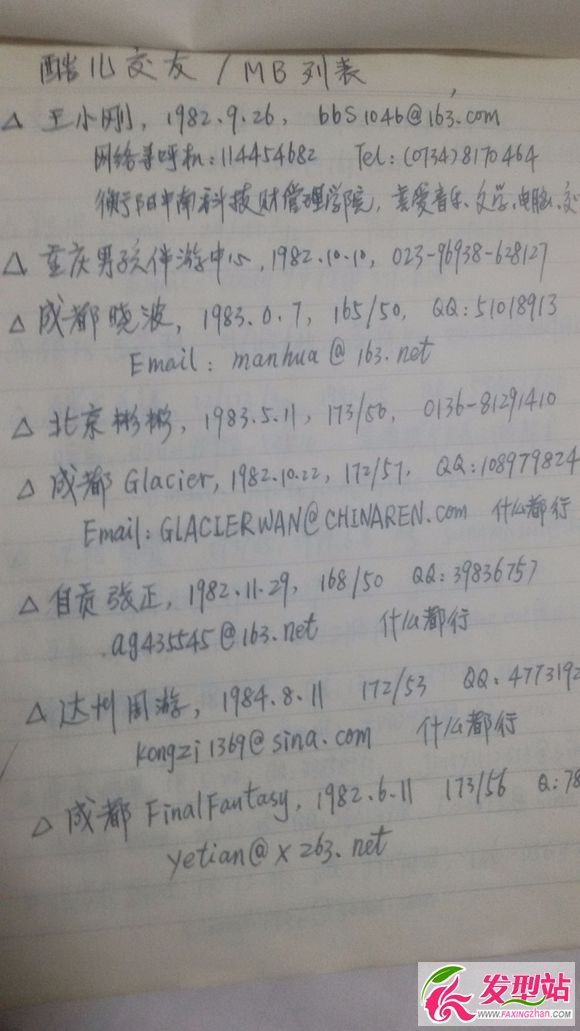 酷儿交友 / MB 列表
△ 王小刚, 1982.9.26, bbs1046@163.com
网络寻呼机:114454682 Tel:(0734)8170464
衡阳中南科技财管理学院, 喜爱音乐、文学、电脑、交
△ 重庆男孩伴游中心, 1982.10.10, 023-96938-628127
△ 成都晓波, 1983.0.7, 165/50, QQ:51018913
Email: manhua@163.net
△ 北京彬彬, 1983.5.11, 173/56, 0136-81291410
△ 成都 Glacier, 1982.10.22, 172/57, QQ:108979824
Email:GLACIERWAN@CHINAREN.com 什么都行
△ 自贡张正, 1982.11.29, 168/50 QQ:39836757
ag435545@163.net 什么都行
△ 达州周游, 1984.8.11 172/53 QQ:4773192
kongzi1369@sina.com 什么都行
△ 成都 FinalFantasy, 1982.6.11 173/56 Q:78
yetian@x263.net
发型站
www.FAXINGZHAN.com